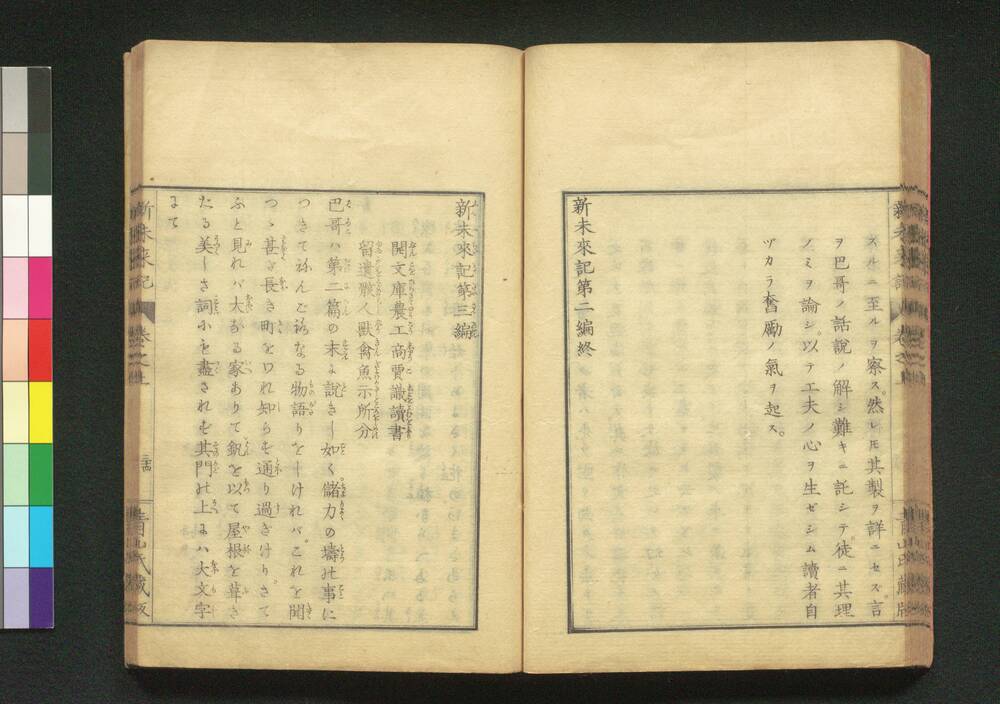 スルニ至ルヲ察ス。然レ𪜈其製ヲ詳ニセズ。言
ヲ巴哥ノ話説ノ解シ難キニ託シテ。徒ニ其理
ノミヲ論シ。以テ工夫ノ心ヲ生ゼシム讀者自
ヅカラ奮勵ノ氣ヲ起ス。
新未來記第二編終
新未來記第三編
開文庫農工商賈識讀書
留遺骸人獸禽魚示所分
巴哥ハ第二篇の末に説きし如く儲力の壔の事に
つきてねんごろなる物語りをしけれバ。これを聞
つゝ甚だ長き町をわれ知らず通り過ぎけり。さて
ふと見れバ大なる家ありて釩を以て屋根を葺き
たる美しさ詞に尽されず其門の上にハ大文字
にて
新未來記
卷之上
青山氏藏版